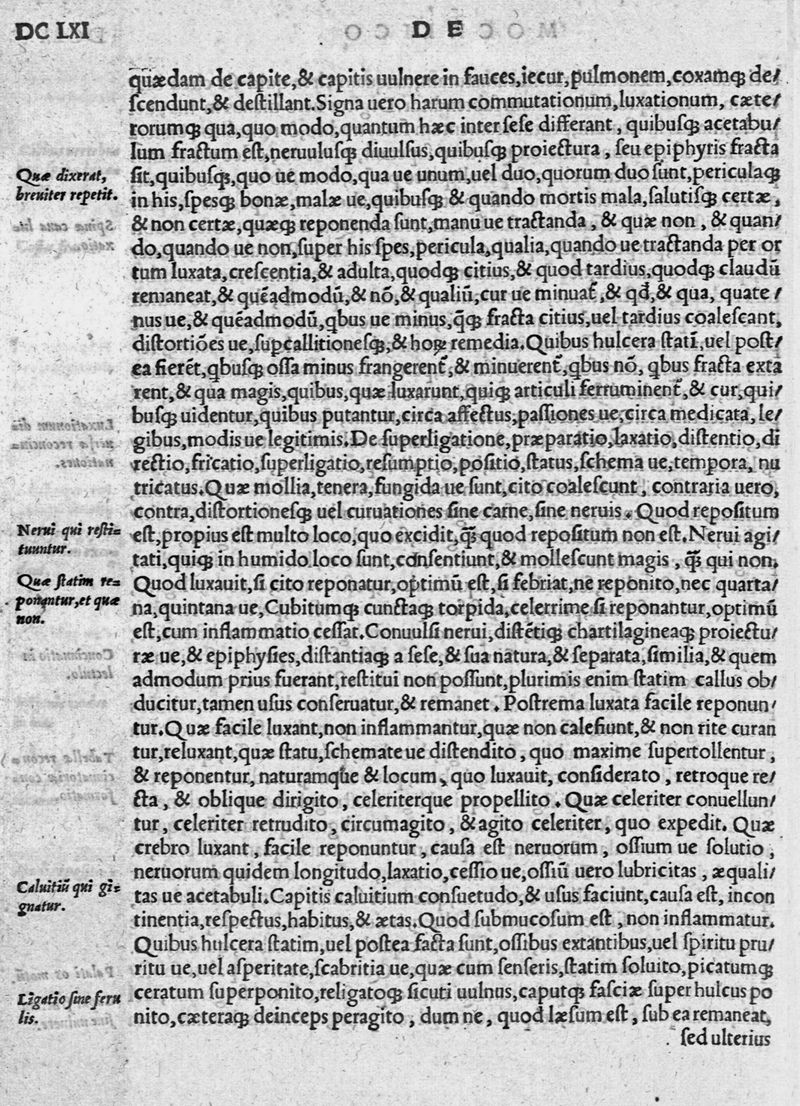 DC LXI
DE
quædam de capite,& capitis uulnere in fauces,iecur,pulmonem,coxamq́ꝫ de/
scendunt,& destillant.Signa uero harum commutationum,luxationum, cæte/
rorumqꝫ qua,quo modo,quantum hæc inter sese differant, quibusqꝫ acetabu/
lum fractum est,neruulusqꝫ diuulsus,quibusqꝫ proiectura, seu epiphyris fracta
Quæ dixerat,
sit,quibusqꝫ,quo ue modo,qua ue unum,uel duo,quorum duo sunt,periculaqꝫ
breuiter repetit.
in his,spesqꝫ bonæ,malæ ue,quibusqꝫ & quando mortis mala,salutisqꝫ certæ,
& non certæ,quæqꝫ reponenda sunt,manu ue tractanda, & quæ non, & quan/
do,quando ue non,super his spes,pericula,qualia,quando ue tractanda per or
tum luxata,crescentia,& adulta,quodqꝫ citius,& quod tardius,quodqꝫ claudū
remaneat,& quéadmodū,& nō,& qualiū,cur ue minuat̃,& qđ,& qua, quate/
nus ue,& quéadmodū,qbus ue minus,q̄qꝫ fracta citius,uel tardius coalescant,
distortiões ue,supcallitionesqꝫ,& hoꝝ remedia.Quibus hulcera statī,uel post/
ea fierēt,qbusqꝫ ossa minus frangerent̃,& minuerent̃,qbus nō, qbus fracta exta
rent,& qua magis,quibus,quæ luxarunt,quiqꝫ articuli ferruminent̃,& cur,qui/
busqꝫ uidentur,quibus putantur,circa affectus,passiones ue,circa medicata, le/
gibus,modis ue legitimis.De superligatione,præparatio,laxatio,distentio,di
rectio,fricatio,superligatio,resumptio,positio,status,schema ue,tempora, nu
tricatus.Quæ mollia,tenera,fungida ue sunt,cito coalescunt, contraria uero,
contra,distortionesqꝫ uel curuationes sine carne,sine neruis.Quod repositum
Nerui qui resti=
est,propius est multo loco,quo excidit,q̄ꝫ quod repositum non est.Nerui agi/
tuuntur.
tati,quiqꝫ in humido loco sunt,consentiunt,& mollescunt magis, q̄ꝫ qui non.
Quæ statim re=
Quod luxauit,si cito reponatur,optimū est,si febriat,ne reponito,nec quarta/
ponantur,et quæ
na,quintana ue,Cubitumqꝫ cunctaqꝫ torpida,celerrime si reponantur,optimū
non.
est,cum inflammatio cessat.Conuulsi nerui,distētiqꝫ chartilagineaqꝫ proiectu/
ræ ue,& epiphysies,distantiaqꝫ a sese,& sua natura,& separata,similia,& quem
admodum prius fuerant,restitui non possunt,plurimis enim statim callus ob/
ducitur,tamen usus conseruatur,& remanet.Postrema luxata facile reponun/
tur.Quæ facile luxant,non inflammantur,quæ non calefiunt,& non rite curan
tur,reluxant,quæ statu,schemate ue distendito, quo maxime supertollentur,
& reponentur, naturamque & locum, quo luxauit, considerato, retroque re/
cta, & oblique dirigito, celeriterque propellito. Quæ celeriter conuellun/
tur, celeriter retrudito, circumagito, & agito celeriter, quo expedit. Quæ
crebro luxant, facile reponuntur, causa est neruorum, ossium ue solutio,
neruorum quidem longitudo,laxatio,cessio ue,ossiū uero lubricitas, æquali/
Caluitiū qui gi=
tas ue acetabuli.Capitis caluitium consuetudo,& usus faciunt,causa est, incon
gnatur.
tinentia,respectus,habitus,& ætas.Quod submucosum est, non inflammatur.
Quibus hulcera statim,uel postea facta sunt,ossibus extantibus,uel spiritu pru/
ritu ue,uel asperitate,scabritia ue,quæ cum senseris,statim soluito,picatumqꝫ
Ligatio sine feru
ceratum superponito,religatoqꝫ sicuti uulnus,caputqꝫ fasciæ super hulcus po
lis.
nito,cæteraqꝫ deinceps peragito, dum ne, quod læsum est, sub ea remaneat,
sed ulterius